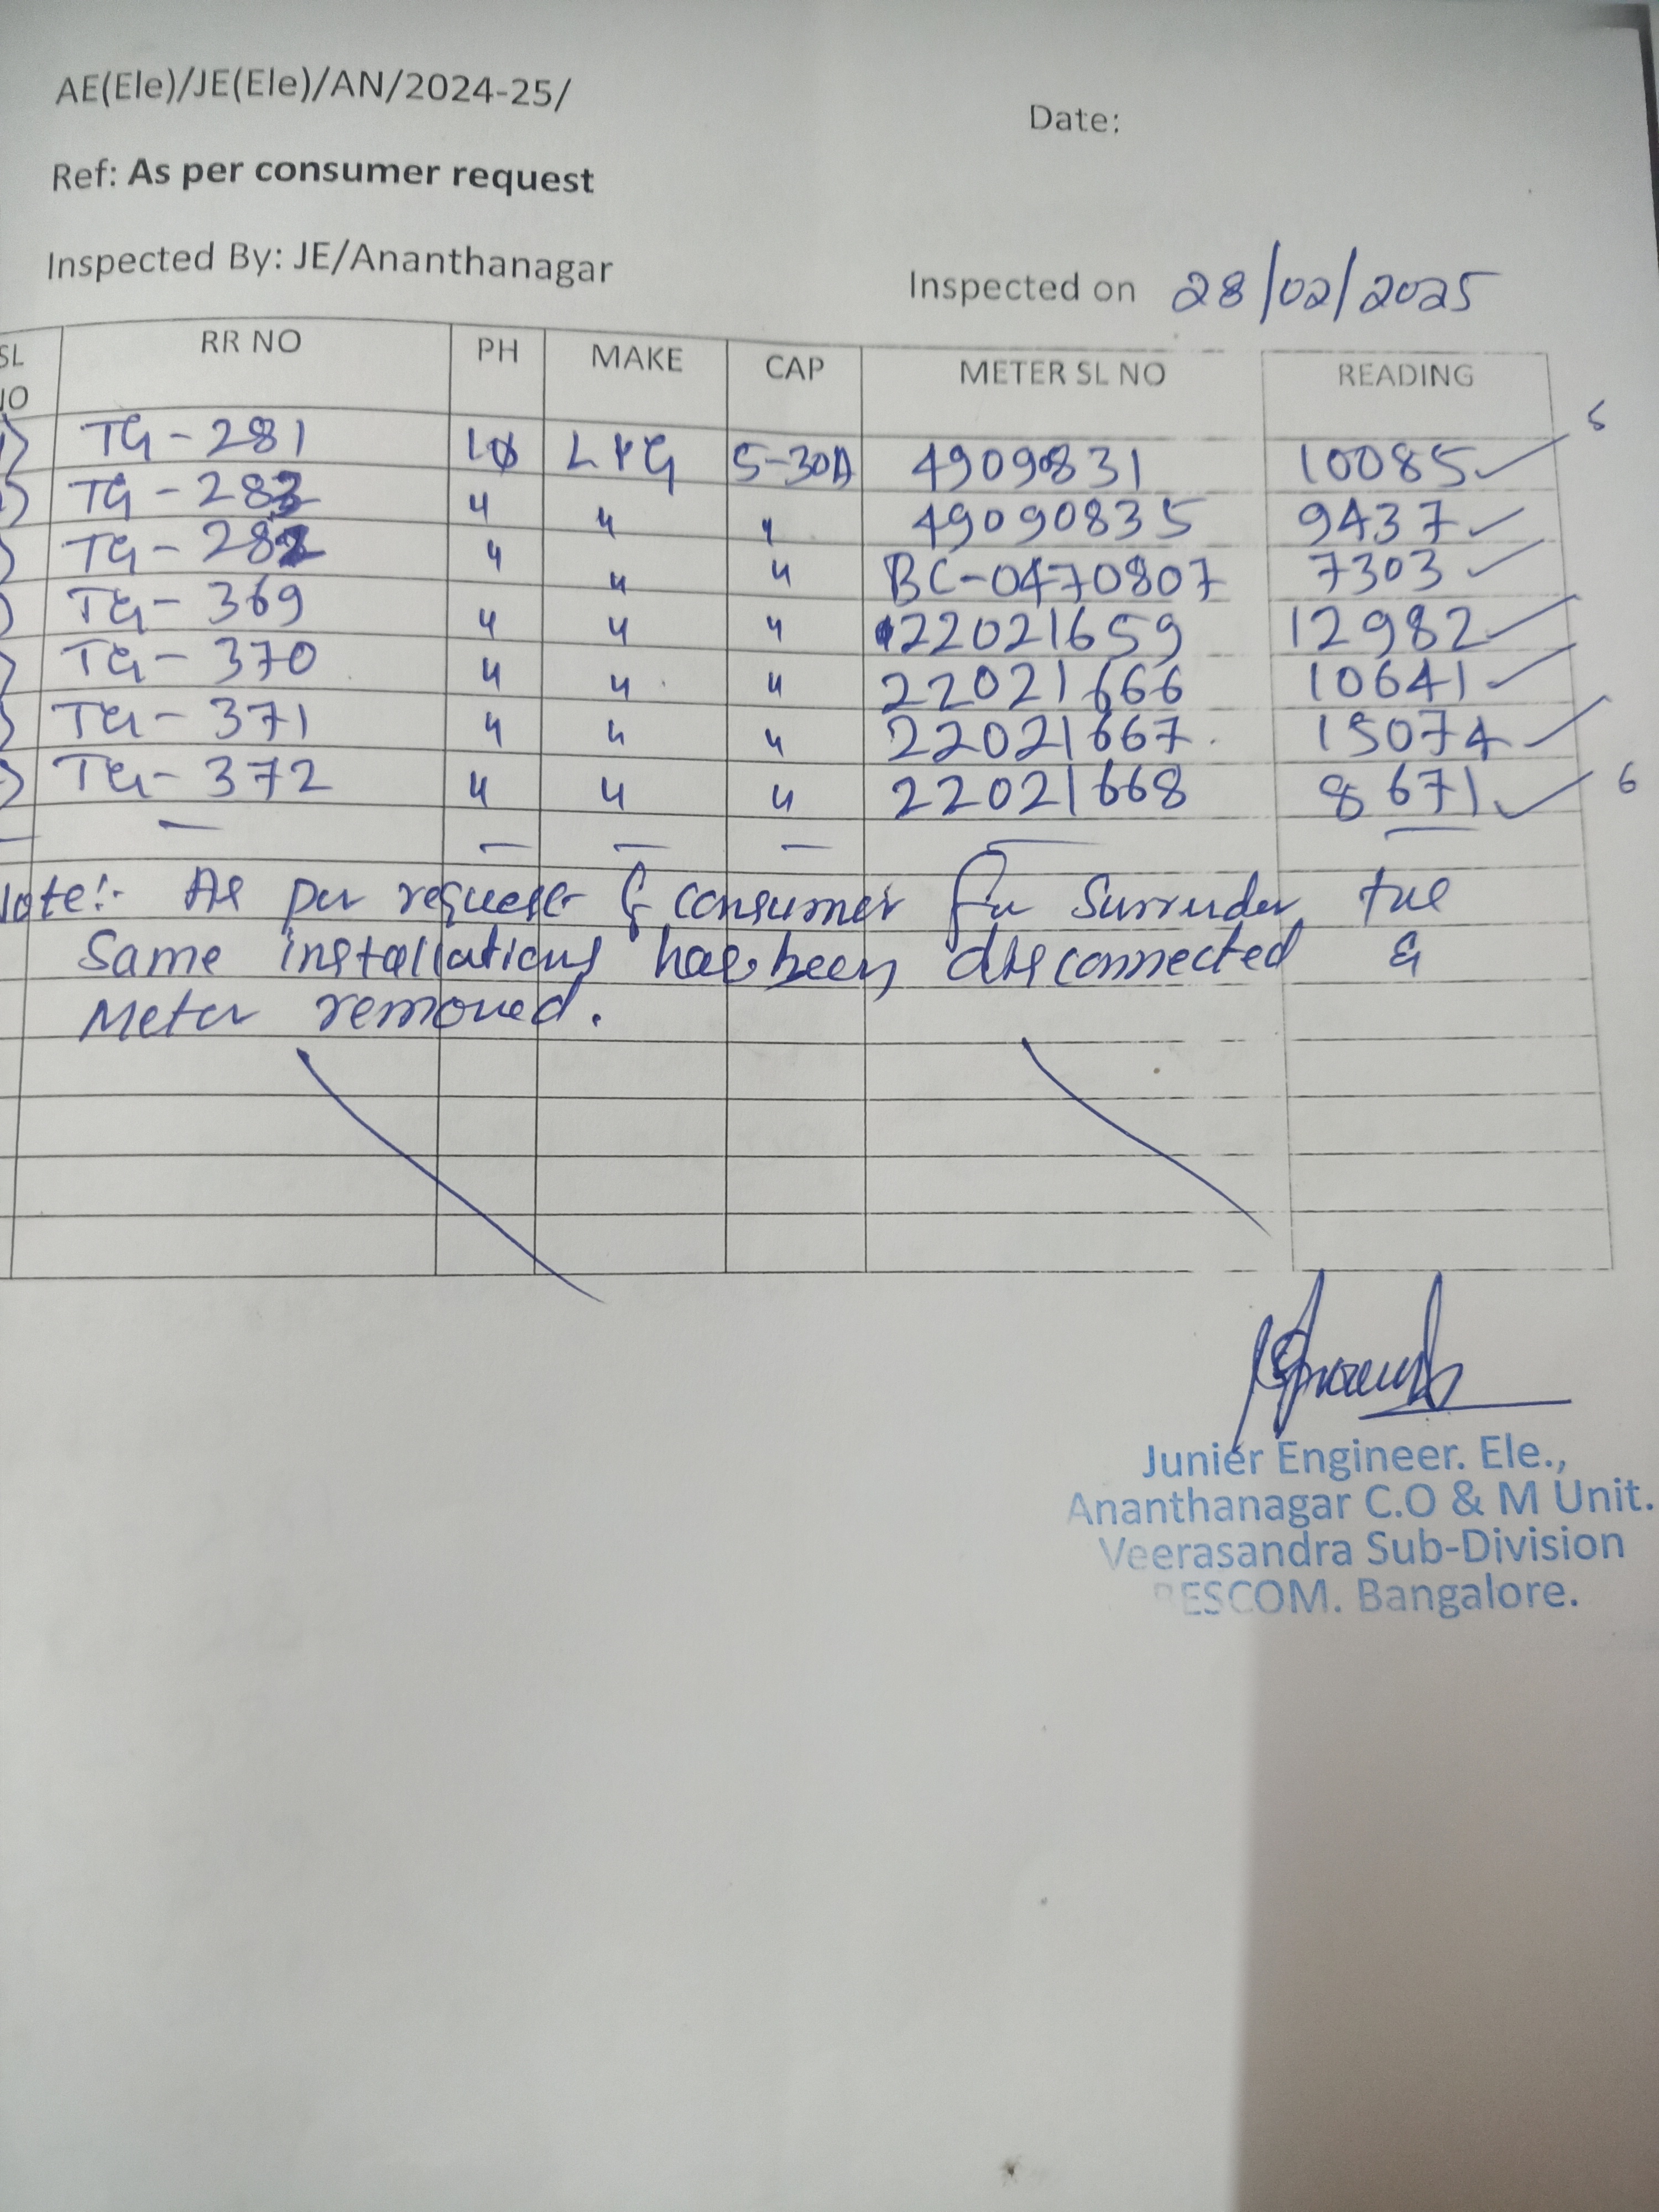 AE(Ele)/JE(Ele)/AN/2024-25/
Date:
Ref: As per consumer request
Inspected By: JE/Ananthanagar
Inspected on 28/02/2025
SL NO RR NO PH MAKE CAP METER SL NO READING
TG-281 1ф L&G 5-30A 49090831 10085 5
TG-283 " " " 49090835 9437
TG-282 " " " BC-0470807 7303
TG-369 " " " 22021659 12982
TG-370 " " " 22021666 10641
TG-371 " " " 22021667 15074
TG-372 " " " 22021668 8671 6
Note:- As per request of consumer for Surrender, the
Same installations has been disconnected &
Meter removed.
Junier Engineer. Ele.,
Ananthanagar C.O & M Unit.
Veerasandra Sub-Division
BESCOM. Bangalore.